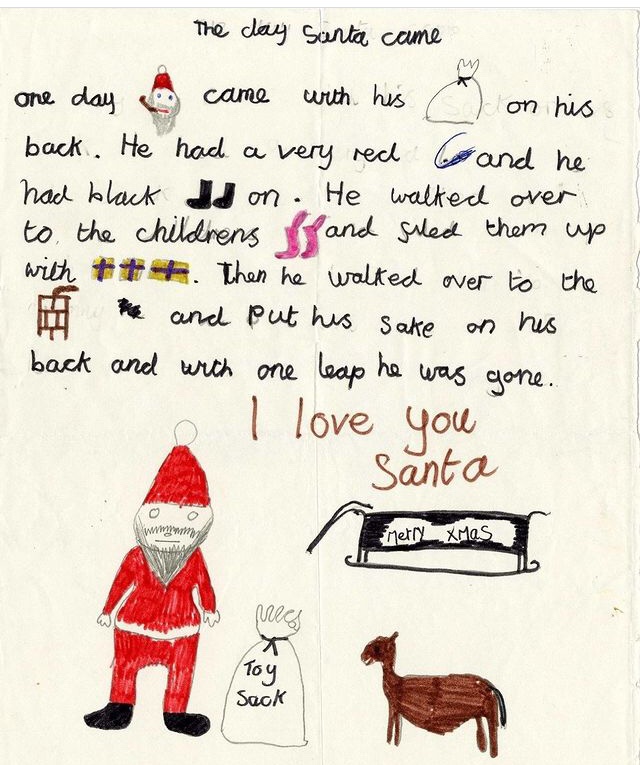 The day Santa came
one day came with his on his
back. He had a very red and he
had black on. He walked over
to, the childrens and filed them up
with . Then he walked over to the
and put his sake on his
back and with one leap he was gone.
I love you
Santa
Merry XMaS
Toy
Sack